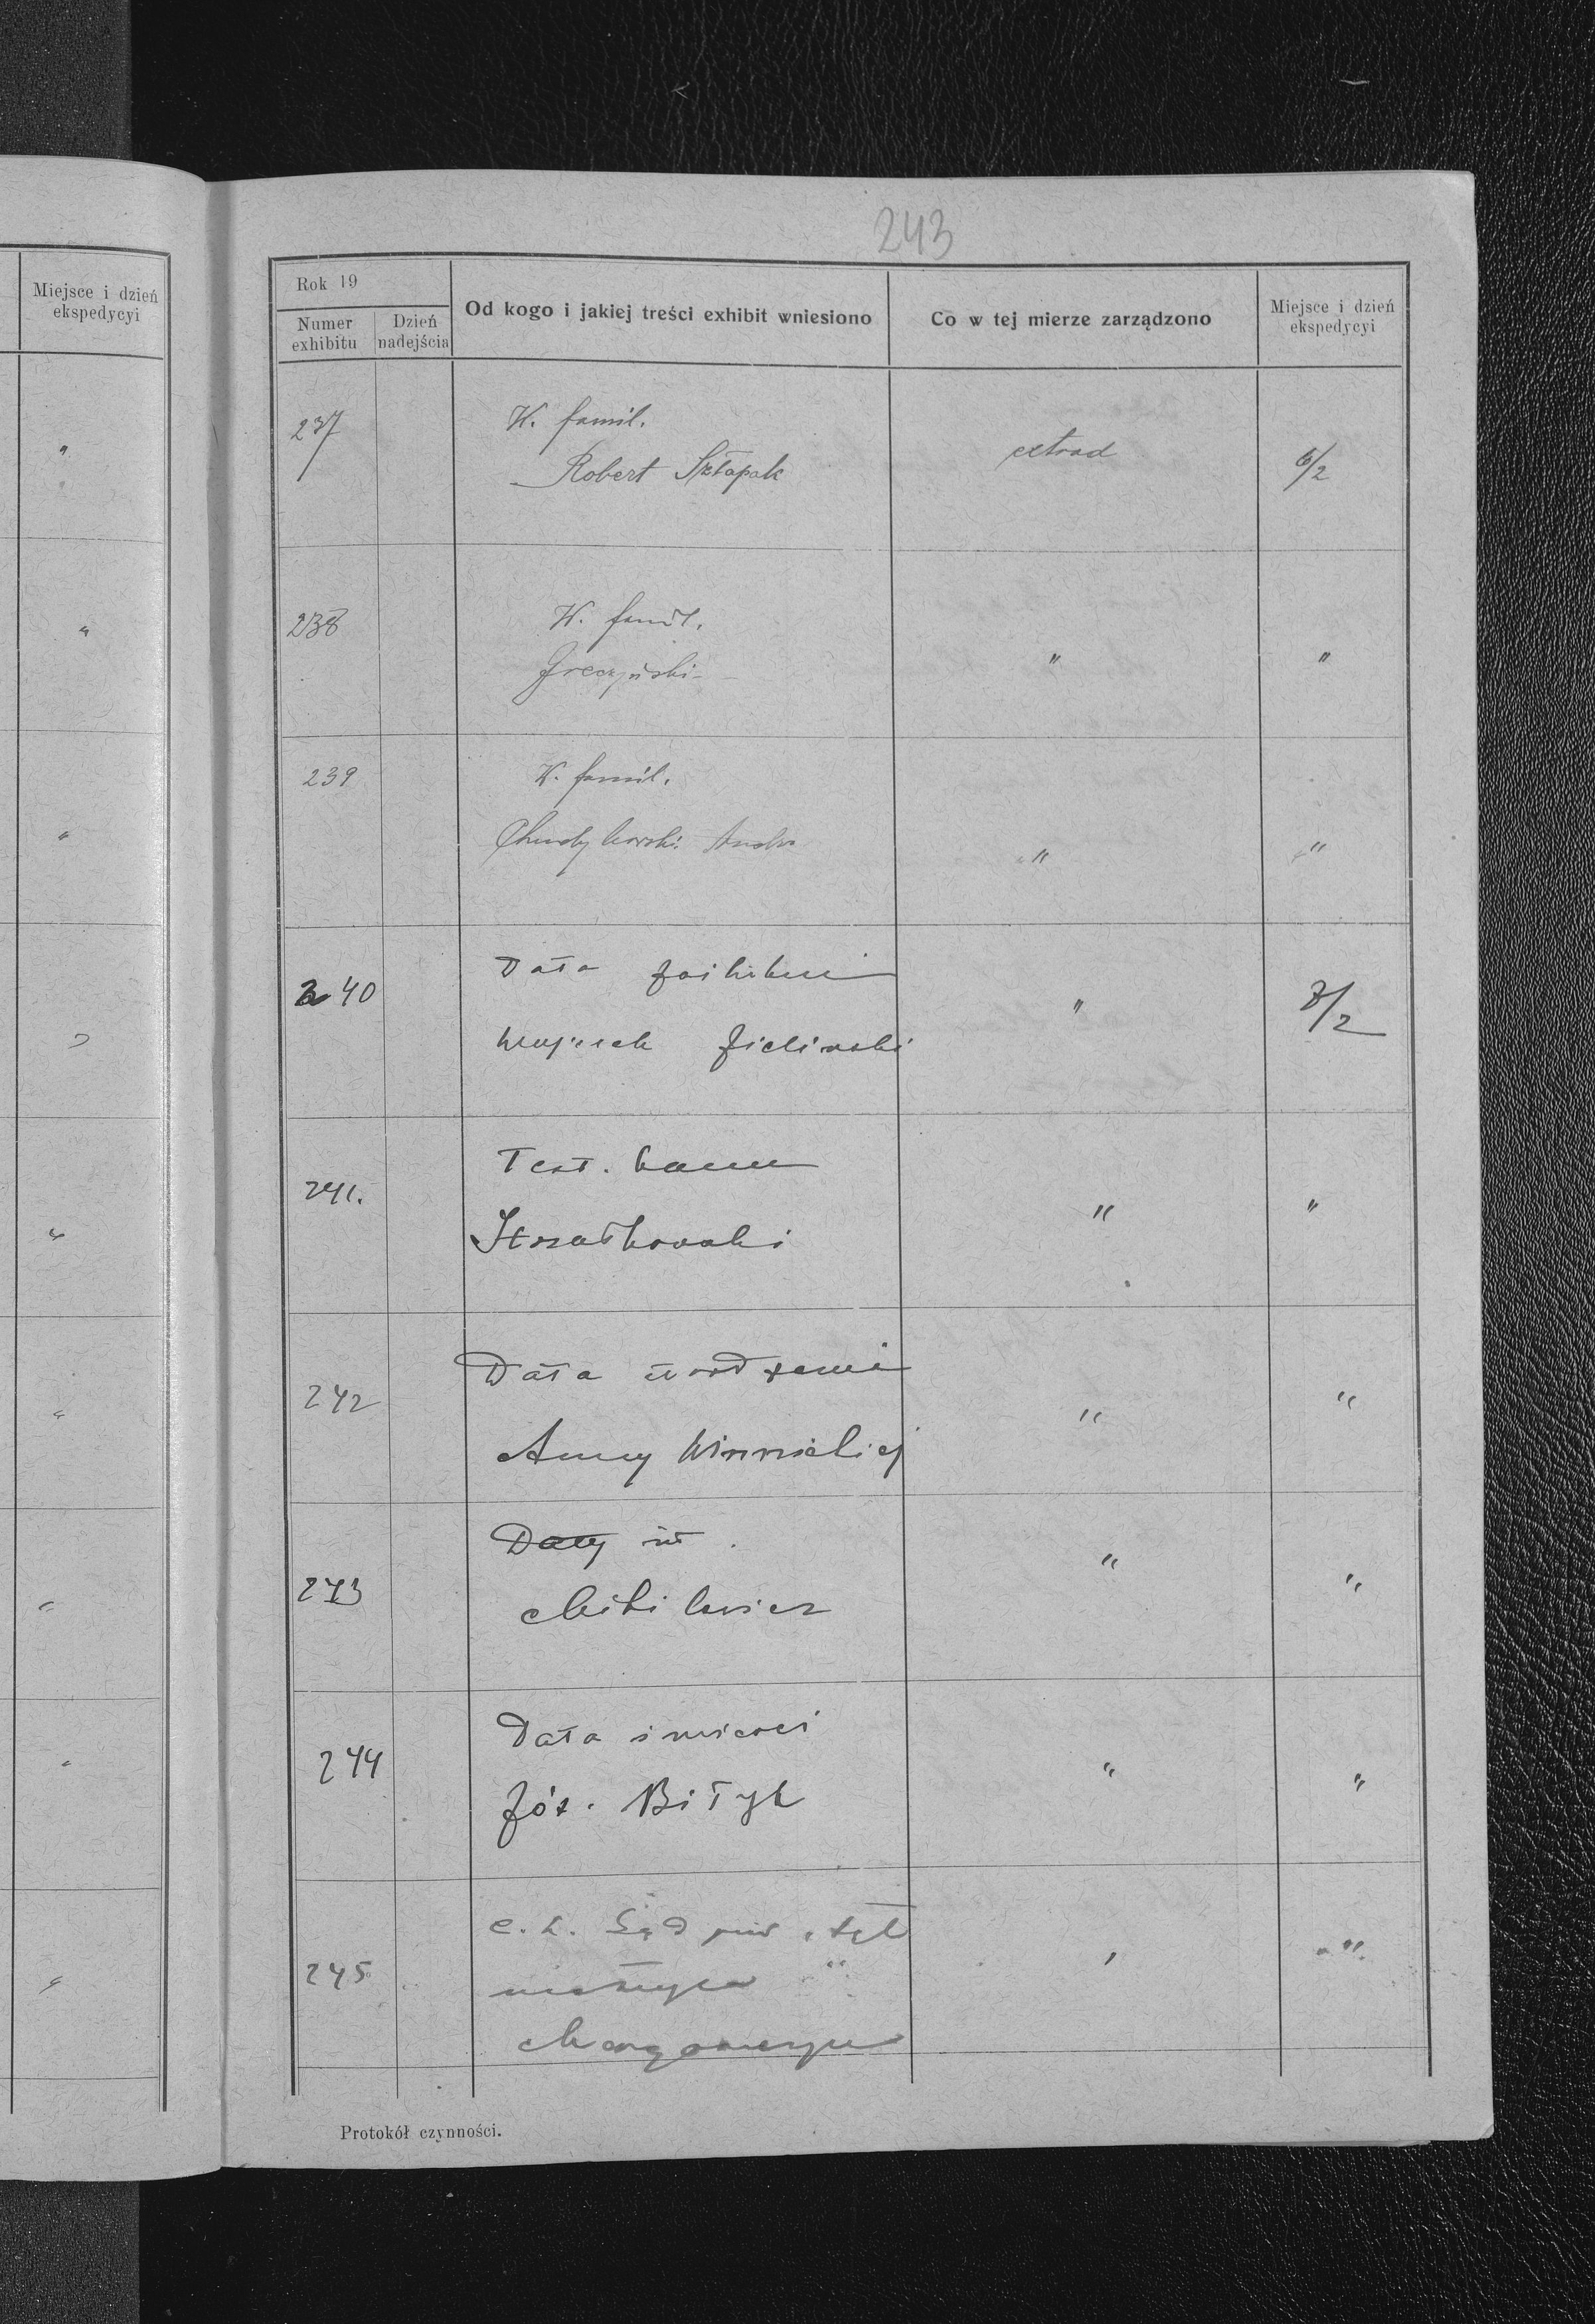 Miejsce i dzień
ekspedycyi
"
"
"
"
"
"
"
"
243
Rok 19
Numer
exhibitu
Dzień
nadejścia
Od kogo i jakiej treści exhibit wniesiono
Co w tej mierze zarządzono
Miejsce i dzień
ekspedycyi
237
W. famil.
Robert Szłapak
extrad
6/2
238
W. famil.
Greczyński
"
"
239
W. famil.
"
"
240
Data
Zieliński
"
7/2
241.
Test.
Strzałkowski
"
"
242
Data urodzenia
Anny Winnickiej
"
"
243
Daty
"
"
244
Data śmierci
Józ. Biłyk
"
"
245
c. k. Sąd
"
"
Protokół czynności.